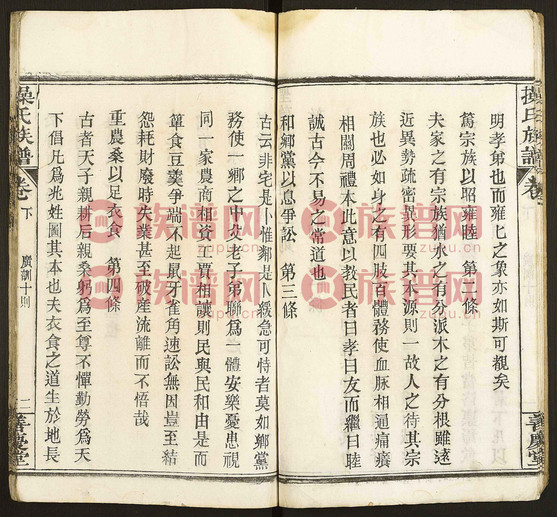 明孝弟也而雍雍之象亦如斯可覩矣
篤宗族以昭雍睦 第二條
夫家之有宗族猶水之有分派木之有分根雖遠
近異勢疏密異形要其本源則一故人之待其宗
族也必如身之有四肢百體務使血脈相通痛癢
相關周禮本此意以教民者曰孝曰友而繼曰睦
誠古今不易之常道也
和鄉黨以息爭訟 第三條
古云非宅是卜惟鄰是人緩急可恃者莫如鄉黨
務使一鄉之中父老子弟聯爲一體安樂憂患視
同一家農商相資工賈相讓則民與民和由是而
簞食豆羹爭端不起鼠牙雀角速訟無因豈至結
怨耗財廢時失業甚至破産流離而不悟哉
重農桑以足衣食 第四條
古者天子親耕后親桑躬爲至尊不憚勤勞爲天
下倡凡爲兆姓圖其本也夫衣食之道生於地長
操氏族譜
卷下
廣訓十則
二
善慶堂
操氏族譜
卷
善慶堂
族谱网
zupu.cn